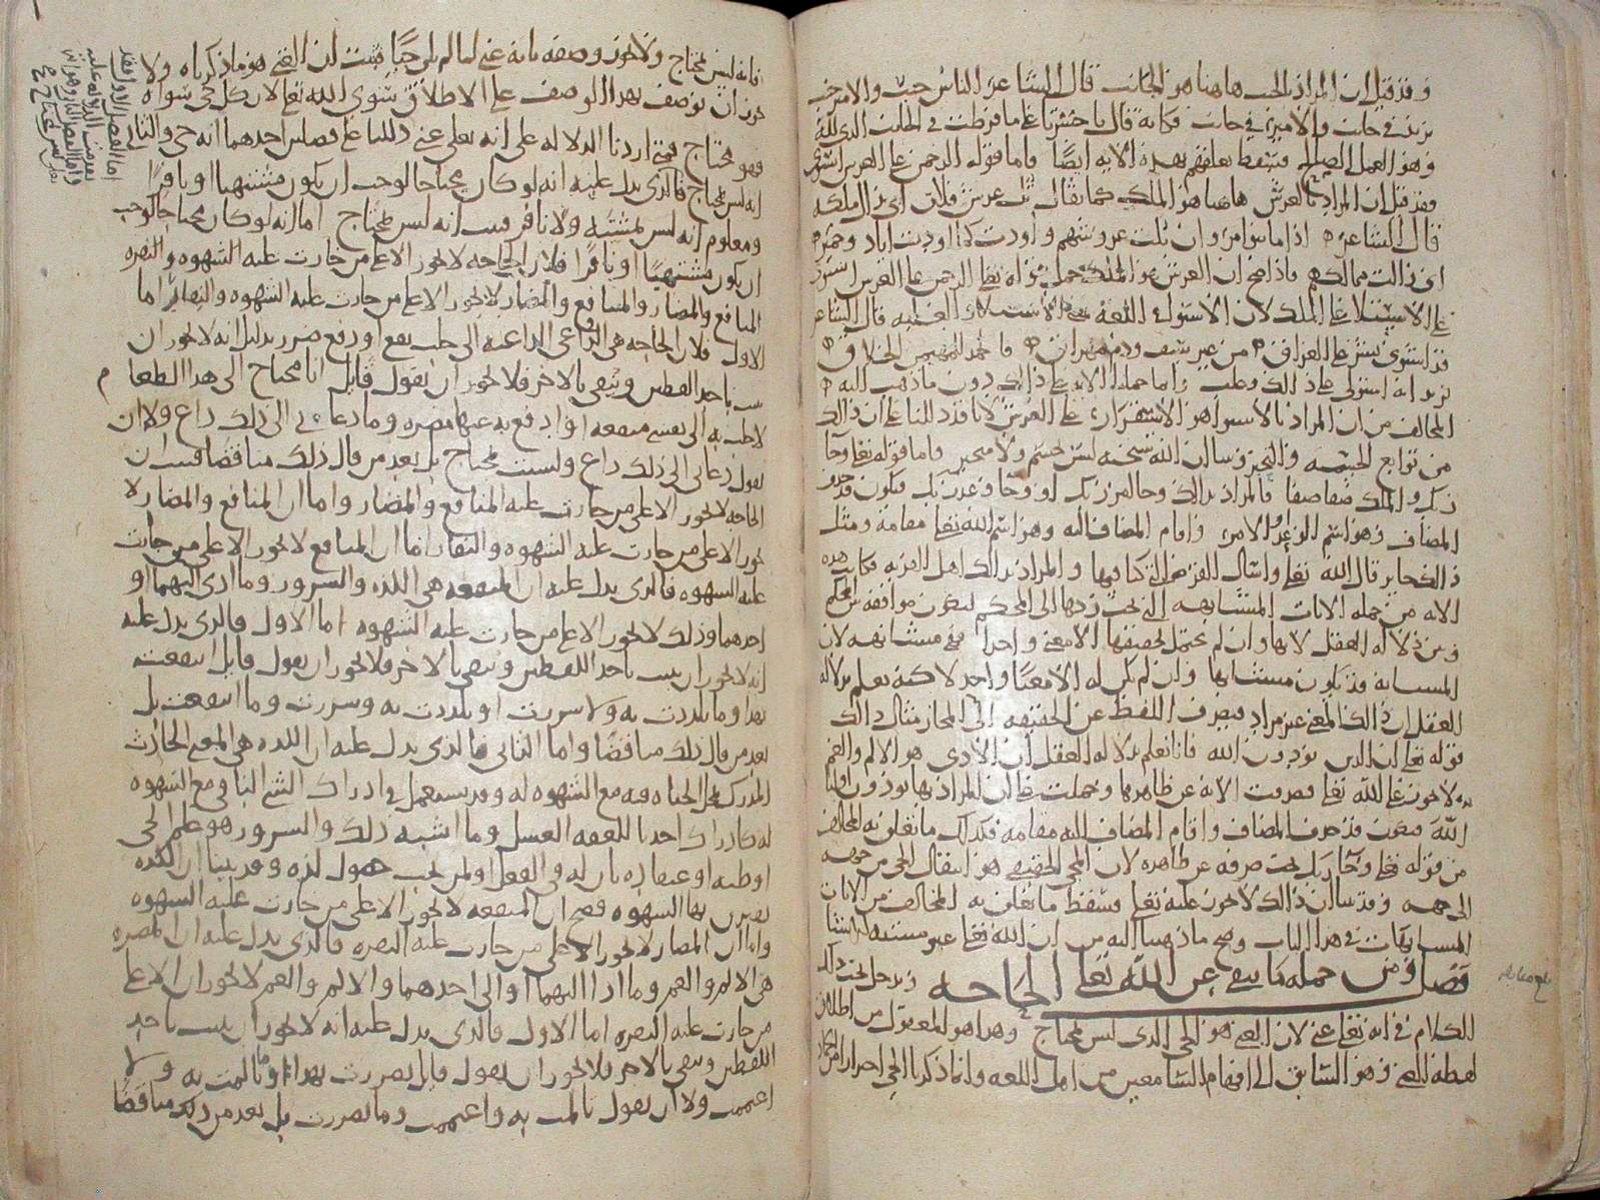 وقد قيل ان المراد بالجنب هاهنا هو الجانب قال الشاعر الناس جنب والامير جنب
يريد في جانب والامير في جانب فكانه قال يا حسرتا على ما فرطت في الجانب الذي لله
وهو العمل الصالح فسقط تعلقهم بهذه الايه ايضًا واما قوله الرحمن على العرش استوى
فقد قيل ان المراد بالعرش هاهنا هو الملك كما يقال ثل عرش فلان اي زال ملكه
قال الشاعر اذا ما بنو مروان ثلت عروشهم واودت كما اودت اياد وحمير
اي زالت ممالكهم فاذا صح ان العرش هو الملك حمل قوله تعالى الرحمن على العرش استوى
على الاستيلا على الملك لان الاستوى في اللغة هو الاستيلاء والغلبه قال الشاعر
قد استوى بشر على العراق من غير سيف ودم مهراق فالحمد للمهيمن الخلاق
يريد انه استولى على ذلك وغلب وانما حملنا الايه على ذلك دون ما ذهب اليه
المخالف من ان المراد بالاستوا هو الاستقرار على العرش لانا قد دللنا على ان ذلك
من توابع الجسميه والتحيز وبينا ان الله سبحانه ليس بجسم ولا متحيز واما قوله تعالى وجا
ربك والملك صفا صفا فالمراد بذلك وجا امر ربك او وجا وعد ربك فيكون قد حذف
المضاف وهو اسم الوعد او الامر واقام المضاف اليه وهو اسم الله تعالى مقامه ومثل
ذلك جايز قال الله تعالى واسال القريه التي كنا فيها والمراد بذلك اهل القريه فكانت هذه
الايه من جمله الايات المتشابهه التي يجب ردها الى المحكم ليكون موافقه
ومن دلاله العقل لانها وان لم يحتمل تحقيقها الا معنى واحدا فهي متشابهه لان
المتشابه قد يكون متشابها وان لم يكن له الا معنًا واحد لا كنه يعلم بدلاله
العقل ان ذلك المعنى غير مراد فيصرف اللفظ عن الحقيقه الى المجاز مثال ذلك
قوله تعالى ان الذين يوذون الله فانا نعلم بدلاله العقل ان الاذى هو الالم والغم
لا يجوز على الله تعالى فصرفت الايه عن ظاهرها وحملت على ان المراد بها يوذون اوليا
الله فيكون قد حذف المضاف واقام المضاف اليه مقامه فكذلك ما تعلق به المخالف
من قوله تعالى وجا ربك يجب صرفه عن ظاهره لان المجي الحقيقي هو انتقال الجايي من جهه
الى جهه وقد بينا ان ذلك لا يجوز عليه تعالى فسقط ما تعلق به المخالف من الايات
المتشابهات في هذا الباب وصح ما ذهبنا اليه من ان الله تعالى غير مشبه للاشيا
فصل ومن جمله ما ينفى عن الله تعالى الحاجه ويدخل تحت ذلك
الكلام في انه تعالى غني لان الغني هو الحي الذي ليس بمحتاج وهذا هو المعقول من اطلاق
لفظه الغني وهو السابق الى افهام السامعين من اهل اللغه وانما ذكرنا الحي احترازا من الجماد
فانه ليس بمحتاج ولا يجوز وصفه بانه غني لما لم يكن حيًا فثبت ان الغني هو ما ذكرناه ولا
يجوز ان يوصف بهذا الوصف على الاطلاق سوى الله تعالى لان كل حي سواه
فهو محتاج فمتى اردنا الدلاله على انه تعالى غني دللنا على فصلين احدهما انه حي والثاني
انه ليس بمحتاج فالذي يدل عليه انه لو كان محتاجا لوجب ان يكون مشتهيا او نافرًا
ومعلوم انه ليس بمشتهٍ ولا نافر فثبت انه ليس بمحتاج اما انه لو كان محتاجا لوجب
ان يكون مشتهيًا او نافرًا فلان الحاجه لا تجوز الا على من جازت عليه الشهوه والنفره
المنافع والمضار والمنافع والمضار لا تجوز الا على من جازت عليه الشهوه والنفار اما
الاول فلان الحاجه هي الدواعي الداعيه الى جلب نفع او دفع ضرر بدليل انه لا يجوز ان
يثبت باحد اللفظين وينفى بالاخر فلا يجوز ان يقول قايل انا محتاج الى هذا الطعام
لاجلب به الى نفسي منفعه او ادفع به عنها مضره وما دعاني الى ذلك داع ولا ان
يقول دعاني الى ذلك داع ولست بمحتاج بل يعد من قال ذلك مناقضًا فثبت ان
الحاجه لا تجوز الا على من جازت عليه المنافع والمضار واما ان المنافع والمضار لا
تجوز الا على من جازت عليه الشهوه والنفار اما ان المنافع لا تجوز الا على من جازت
عليه الشهوه فالذي يدل عليه ان المنفعه هي اللذه والسرور وما ادى اليهما او
احدهما وذلك لا يجوز الا على من جازت عليه الشهوه اما الاول فالذي يدل عليه
انه لا يجوز ان يثبت باحد اللفظين وينفى بالاخر فلا يجوز ان يقول قايل انتفعت
بهذا وما تلذذت به ولا سررت او تلذذت به وسررت وما انتفعت بل
يعد من قال ذلك مناقضًا واما الثاني فالذي يدل عليه ان اللذه هي المعنى الحادث
المدرك بمحل الحياه فيه مع الشهوه له وقد يستعمل في ادراك الشي الباقي مع الشهوه
له كادراك احدنا للعقه العسل وما اشبه ذلك والسرور هو علم الحي
او ظنه او اعتقاده بان له في الفعل او لمن يحب حصول لذه وقد بينا ان اللذه
يقترن بها الشهوه فصح ان المنفعه لا تجوز الا على من جازت عليه الشهوه
واما ان المضار لا تجوز الا على من جازت عليه النفره فالذي يدل عليه ان المضره
هي الالم والغم وما ادا اليهما او الى احدهما والالم والغم لا يجوزان الا على
من جازت عليه النفره اما الاول فالذي يدل عليه انه لا يجوز ان يثبت باحد
اللفظين وينفى بالاخر فلا يجوز ان يقول قايل تضررت بهذا وما تالمت به ولا
اغتممت ولا ان يقول تالمت به واغتممت وما تضررت بل يعد من ذلك مناقضًا